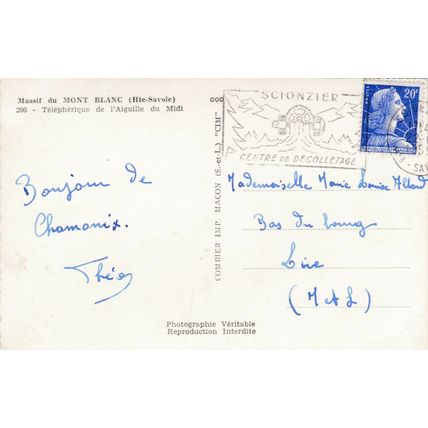 Massif du MONT BLANC (Hte-Savoie)
200 - Téléphérique de l'Aiguille du Midi
Bonjour de
Chamonix.
Théo
COMBIER IMP. MACON (S.-et-L.) "CIM"
SCIONZIER
CENTRE DE DECOLLETAGE
20F
Mademoiselle Marie Louise Allard
Bas du bourg
Liré
(M et L)
Photographie Véritable
Reproduction Interdite